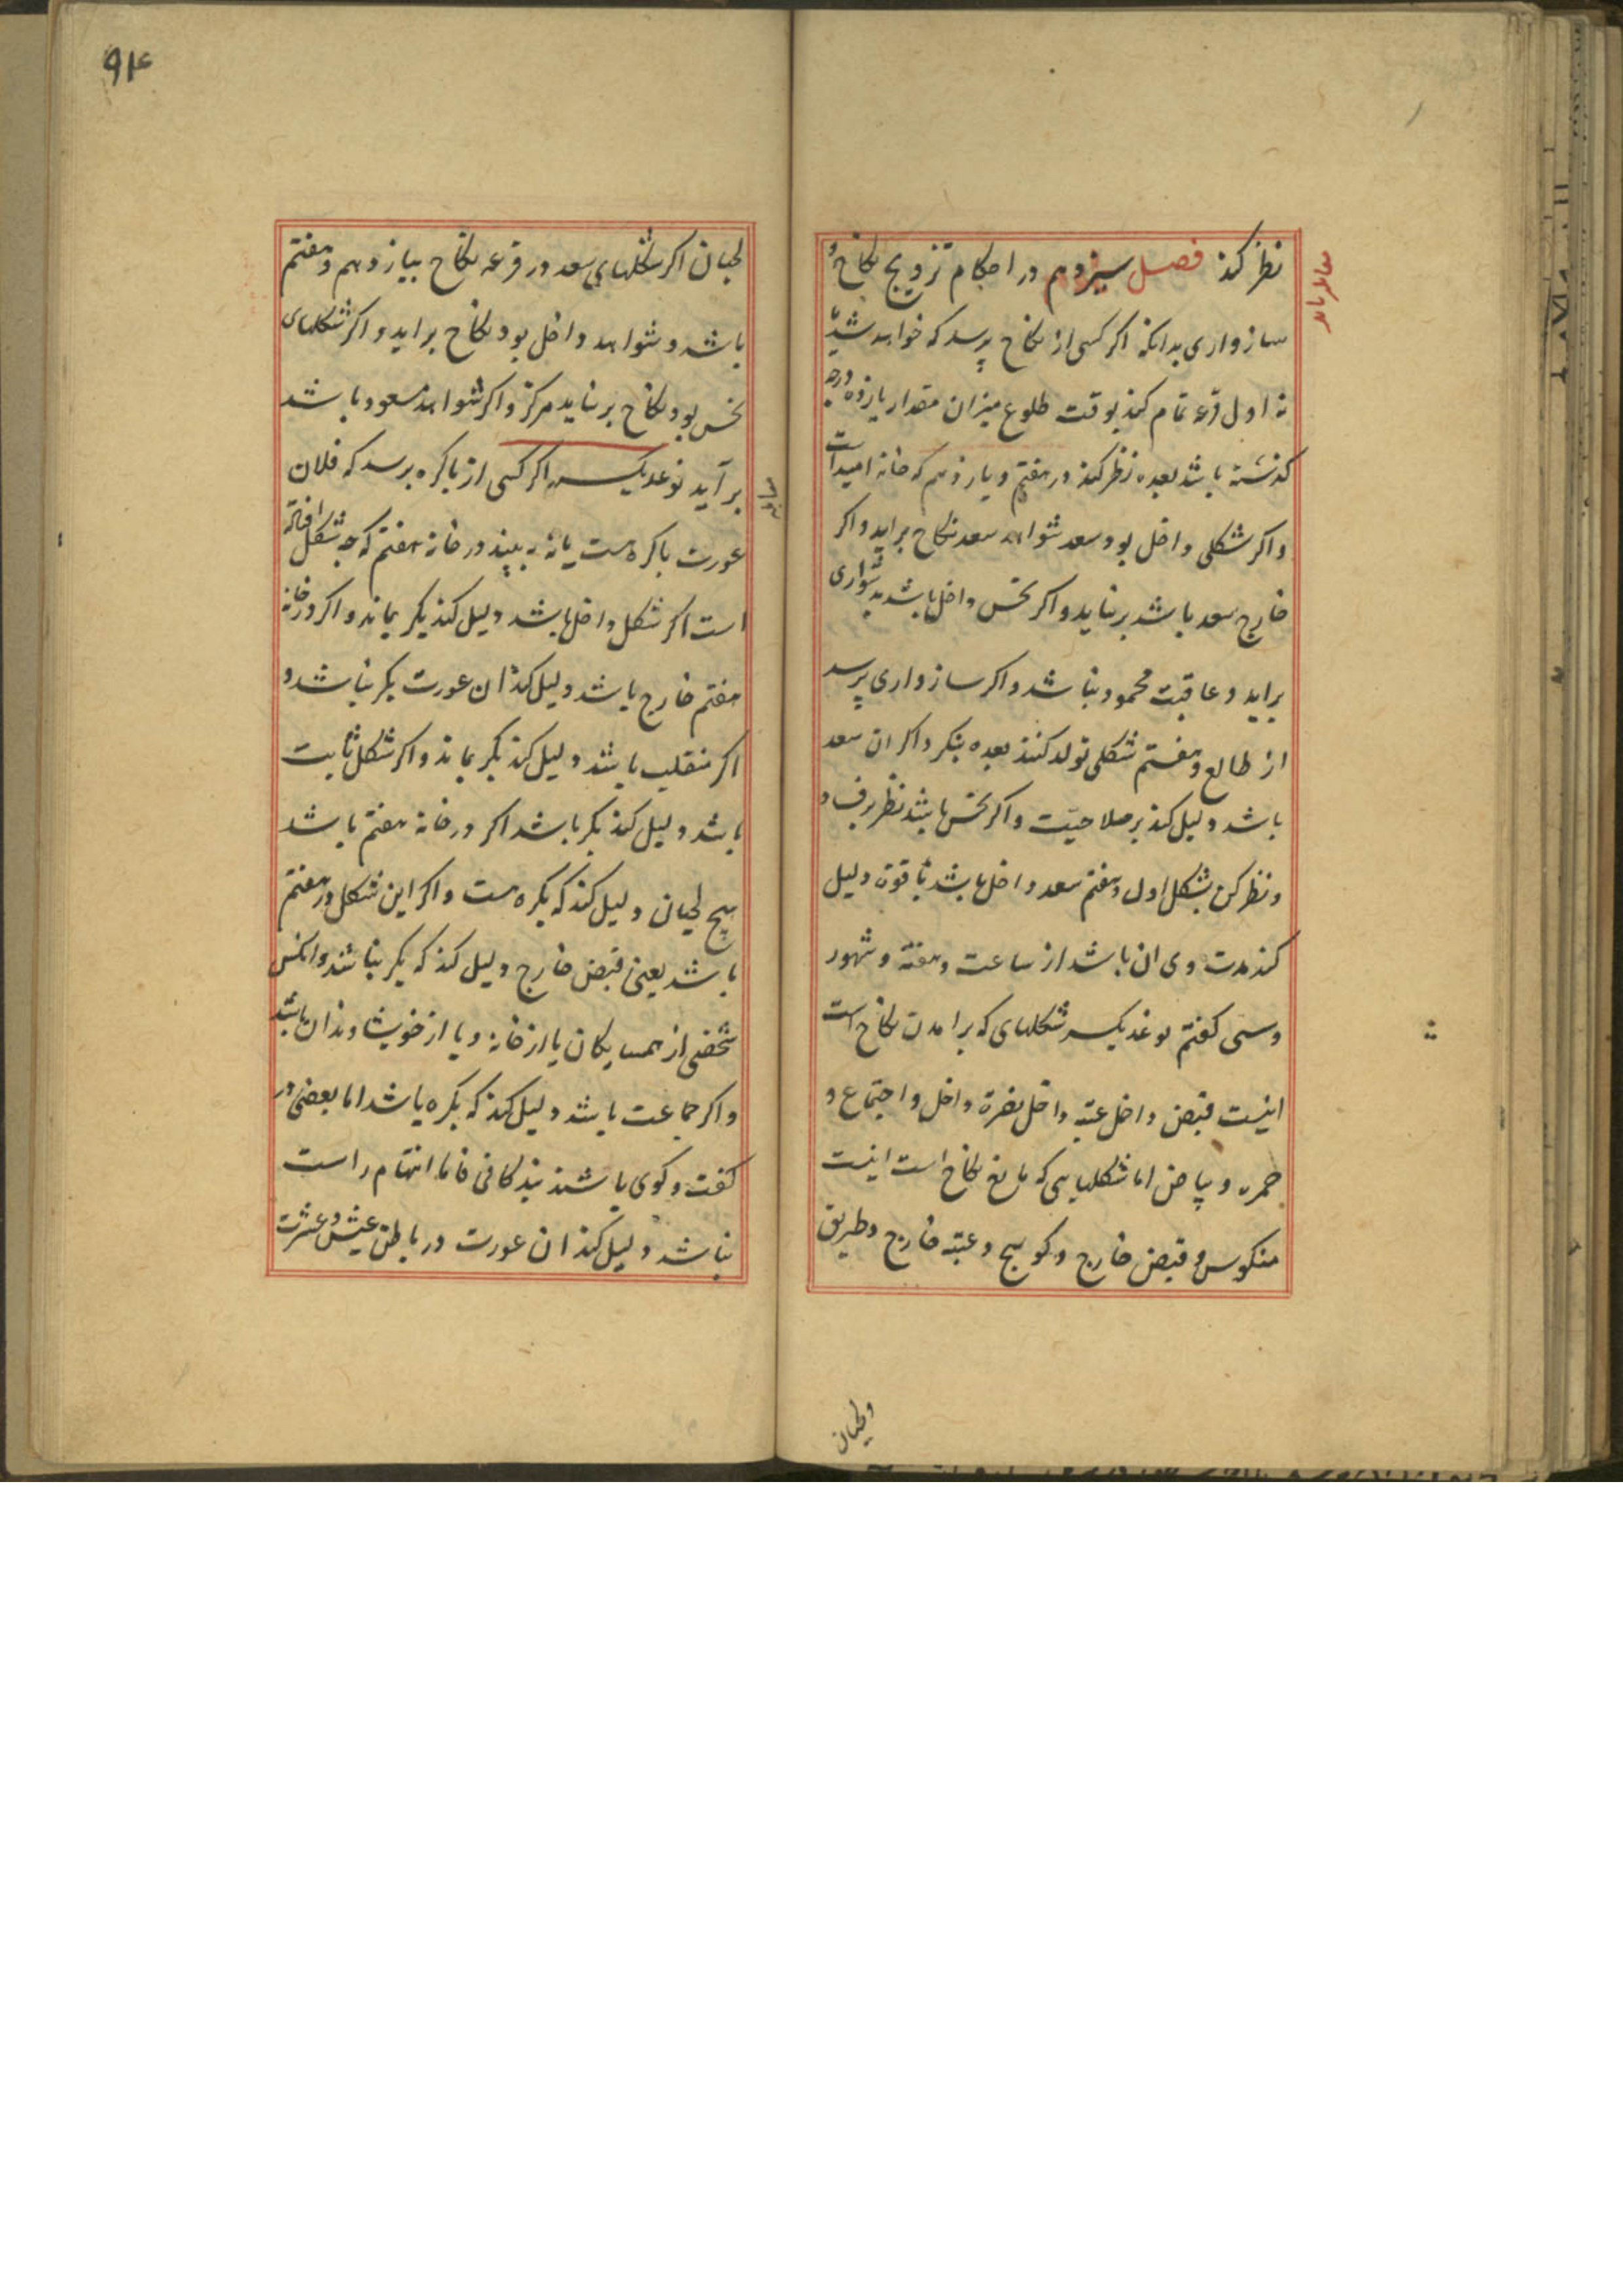 نظر کند فصل سیزدهم در احکام تزویج نکاح و
سازواری بدانکه اگر کسی از نکاح پرسد که خواهد شد یا
نه اول قرعه تمام کند بوقت طلوع میزان مقدار یازده درجه
گذشته باشد بعده نظر کند در هفتم و یازدهم که خانه امید است
و اگر شکلی داخل بود و سعد شواهد سعد نکاح براید و اگر
خارج سعد باشد برنیاید و اگر نحس داخل باشد بدشواری
براید و عاقبت محمود نباشد و اگر سازواری پرسد
از طالع و هفتم شکلی تولد کند بعده بنگرد اگر ان سعد
باشد دلیل کند بر صلاحیت و اگر نحس باشد نظر بر فساد
و نظر کن بشکل اول و هفتم سعد داخل باشد با قوت دلیل
کند مدت وی ان باشد از ساعت و هفته و شهور
و سی کفتم نوعدیکر شکلهای که برامدن نکاح است
اینست قبض داخل عتبه داخل نصرة داخل و اجتماع و
حمره و بیاض اما شکلهایی که مانع نکاح است اینست
منکوس و قبض خارج و کوسج و عتبه خارج و طریق
ولحیان
۹۴
لحیان اگر شکلهای سعد در قرعه نکاح بیازدهم و هفتم
باشد و شواهد داخل بود نکاح براید و اگر شکلهای
نحس بود نکاح برنیاید هرکز و اگر شواهد مسعود باشد
برآید نوعدیکر اگر کسی از باکره پرسد که فلان
عورت باکره هست یا نه ببیند در خانه هفتم که چه شکل افتاده
است اگر شکل داخل باشد دلیل کند بکر بماند و اگر در خانه
هفتم خارج باشد دلیل کند ان عورت بکر نباشد و
اگر منقلب باشد دلیل کند بکر بماند و اگر شکل ثابت
باشد دلیل کند بکر باشد اگر در خانه هفتم باشد
لحیان دلیل کند که بکره هست و اگر این شکل در هفتم
باشد یعنی قبض خارج دلیل کند که بکر نباشد و انکس
شخصی از همسایکان یا از خانه و یا از خویشاوندان باشد
و اگر جماعت باشد دلیل کند که بکره باشد اما بعضی در
کفت و کوی باشند اتهام راست
نباشد دلیل کند ان عورت در باطن عیش و عشرت